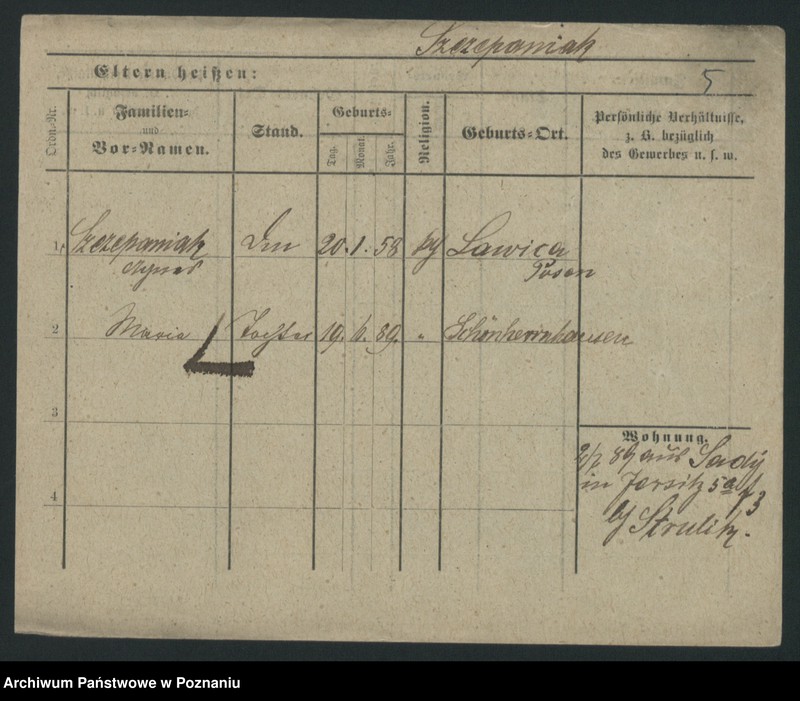 Szczepaniak
5
Eltern heißen:
Ordn.-Nr.
Familien-
und
Vor-Namen.
Stand.
Geburts-
Tag.
Monat.
Jahr.
Religion.
Geburts-Ort.
Persönliche Verhältnisse,
z. B. bezüglich
des Gewerbes u. s. w.
1 Szczepaniak 20. 1. 58 Lawica
Agnes Posen
2 Maria Tochter 19. 6. 89. " Schönherrnhausen
3
Wohnung.
2/7 89 aus Sady
in Jersitz 5a
4
Archiwum Państwowe w Poznaniu